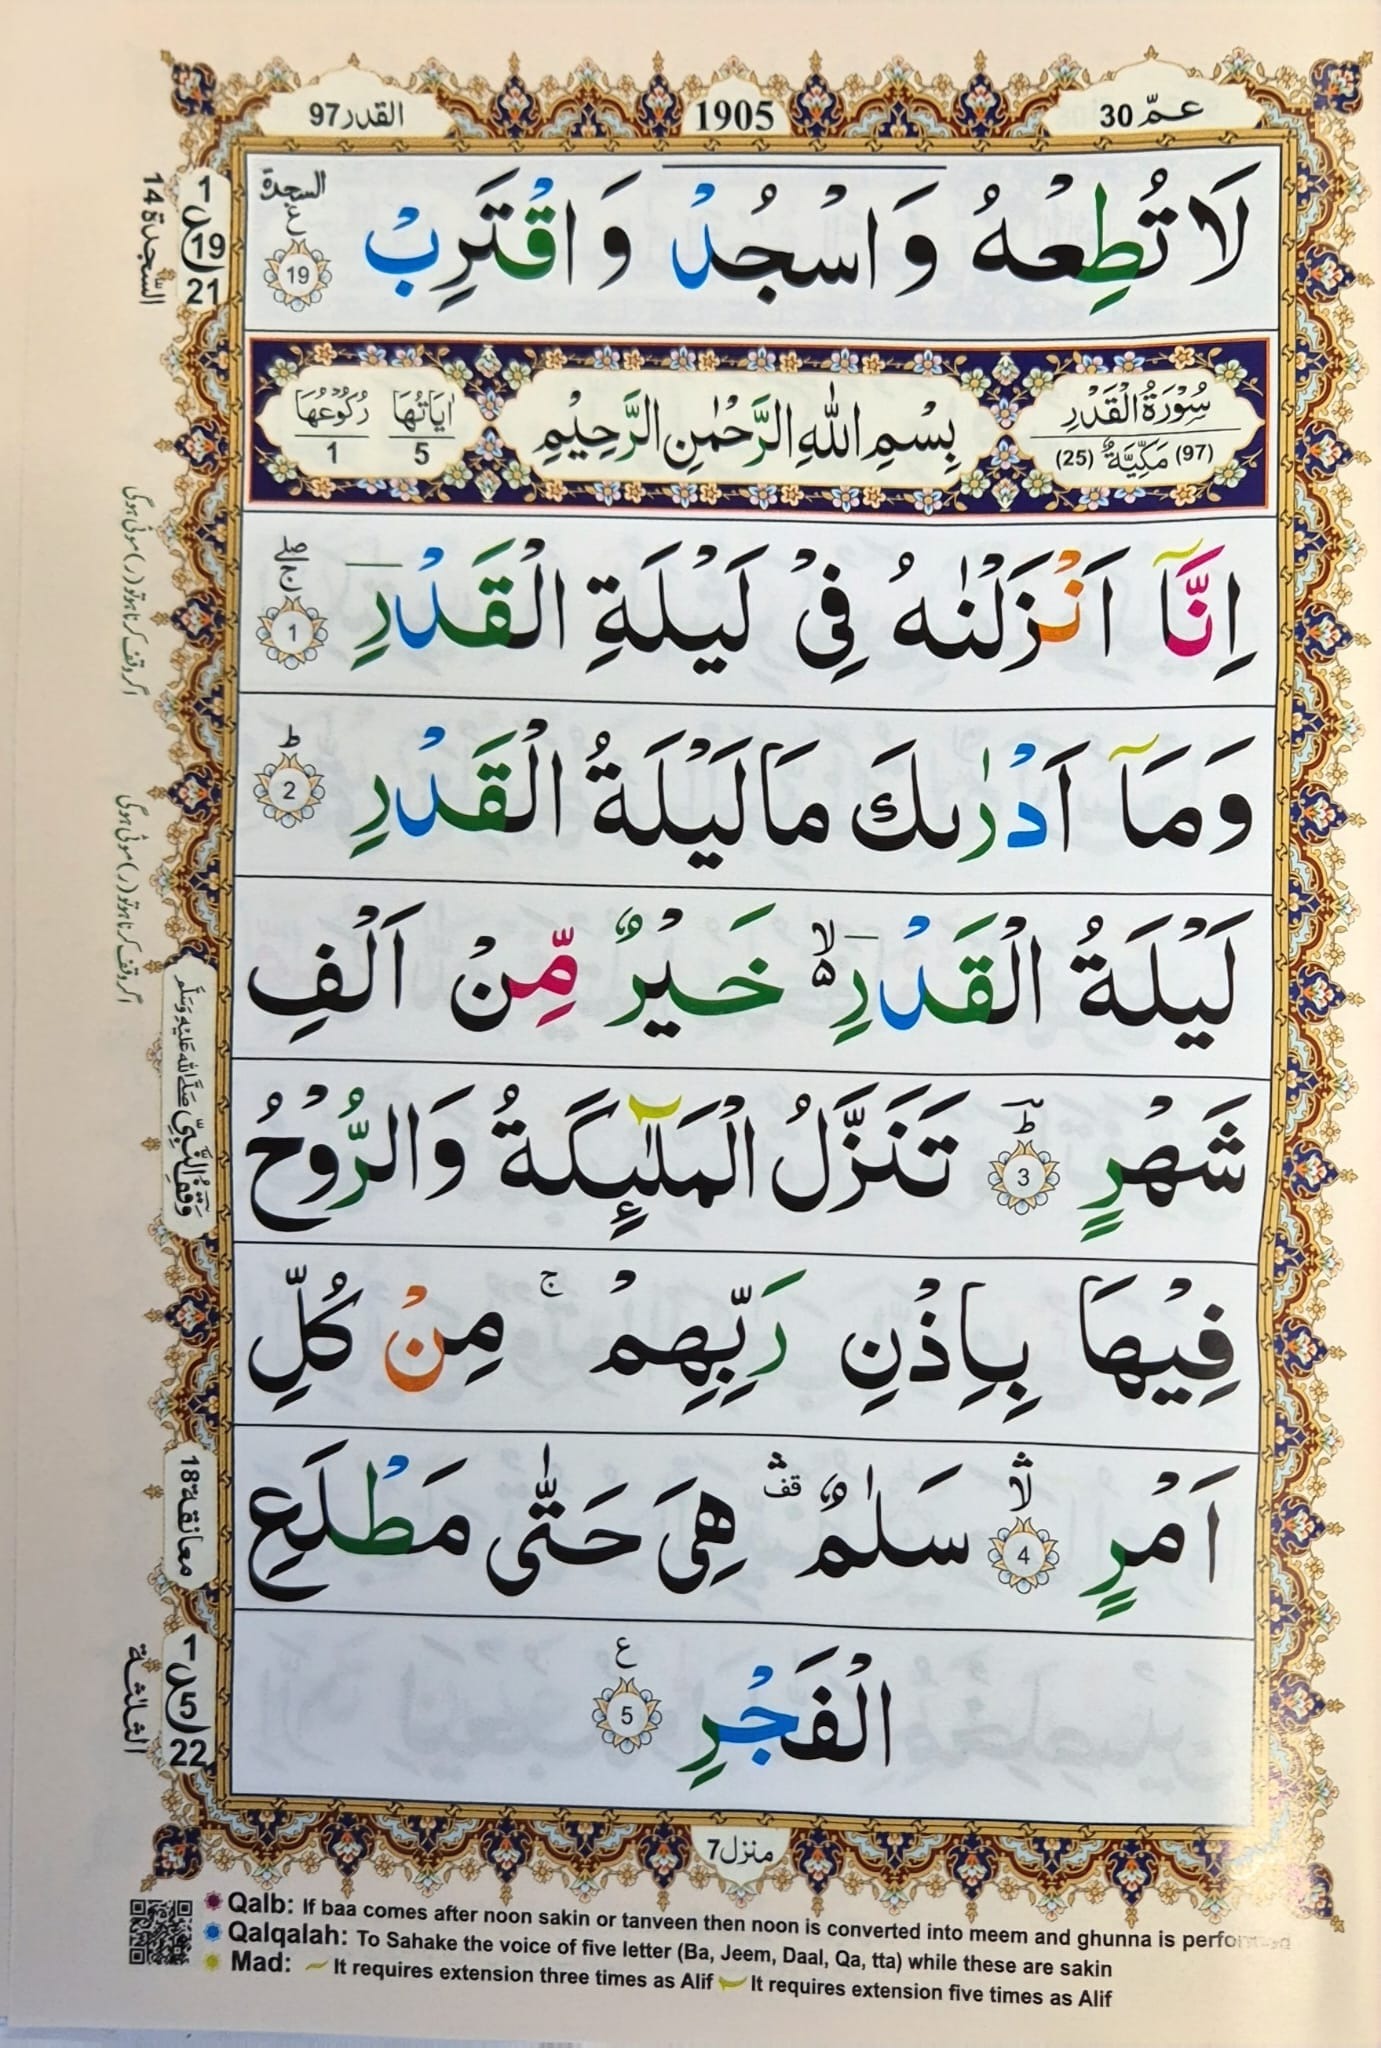 القدر 97
1905
عمّ 30
لَا تُطِعْهُ وَاسْجُدْ وَاقْتَرِبْ
السجدة
ع
19
1
ع
19
21
السّجدة 14
سُوْرَةُ الْقَدْرِ
(97) مَكِّيَّةٌ (25)
بِسْمِ اللّٰهِ الرَّحْمٰنِ الرَّحِيْمِ
اٰيَاتُهَا 5
رُكُوْعُهَا 1
اِنَّاۤ اَنْزَلْنٰهُ فِیْ لَیْلَةِ الْقَدْرِ 1
صلے
ج
وَمَاۤ اَدْرٰىكَ مَا لَیْلَةُ الْقَدْرِ ط 2
لَیْلَةُ الْقَدْرِ ۙ۬ خَیْرٌ مِّنْ اَلْفِ
شَهْرٍ ط 3 تَنَزَّلُ الْمَلٰٓىِٕكَةُ وَالرُّوْحُ
فِیْهَا بِاِذْنِ رَبِّهِمْ ۚ مِنْ كُلِّ
اَمْرٍ 4 سَلٰمٌ قف هِیَ حَتّٰی مَطْلَعِ
الْفَجْرِ 5
ع
اگر وقف کرنا ہو تو (ر) موٹی ہوگی
اگر وقف کرنا ہو تو (ر) موٹی ہوگی
وَقْفُ النَّبِيِّ صَلَّى اللهُ عَلَيْهِ وَسَلَّمَ
معانقة 18
1
ع
5
22
الثلثة
منزل 7
Qalb: If baa comes after noon sakin or tanveen then noon is converted into meem and ghunna is performed
Qalqalah: To Sahake the voice of five letter (Ba, Jeem, Daal, Qa, tta) while these are sakin
Mad: It requires extension three times as Alif It requires extension five times as Alif